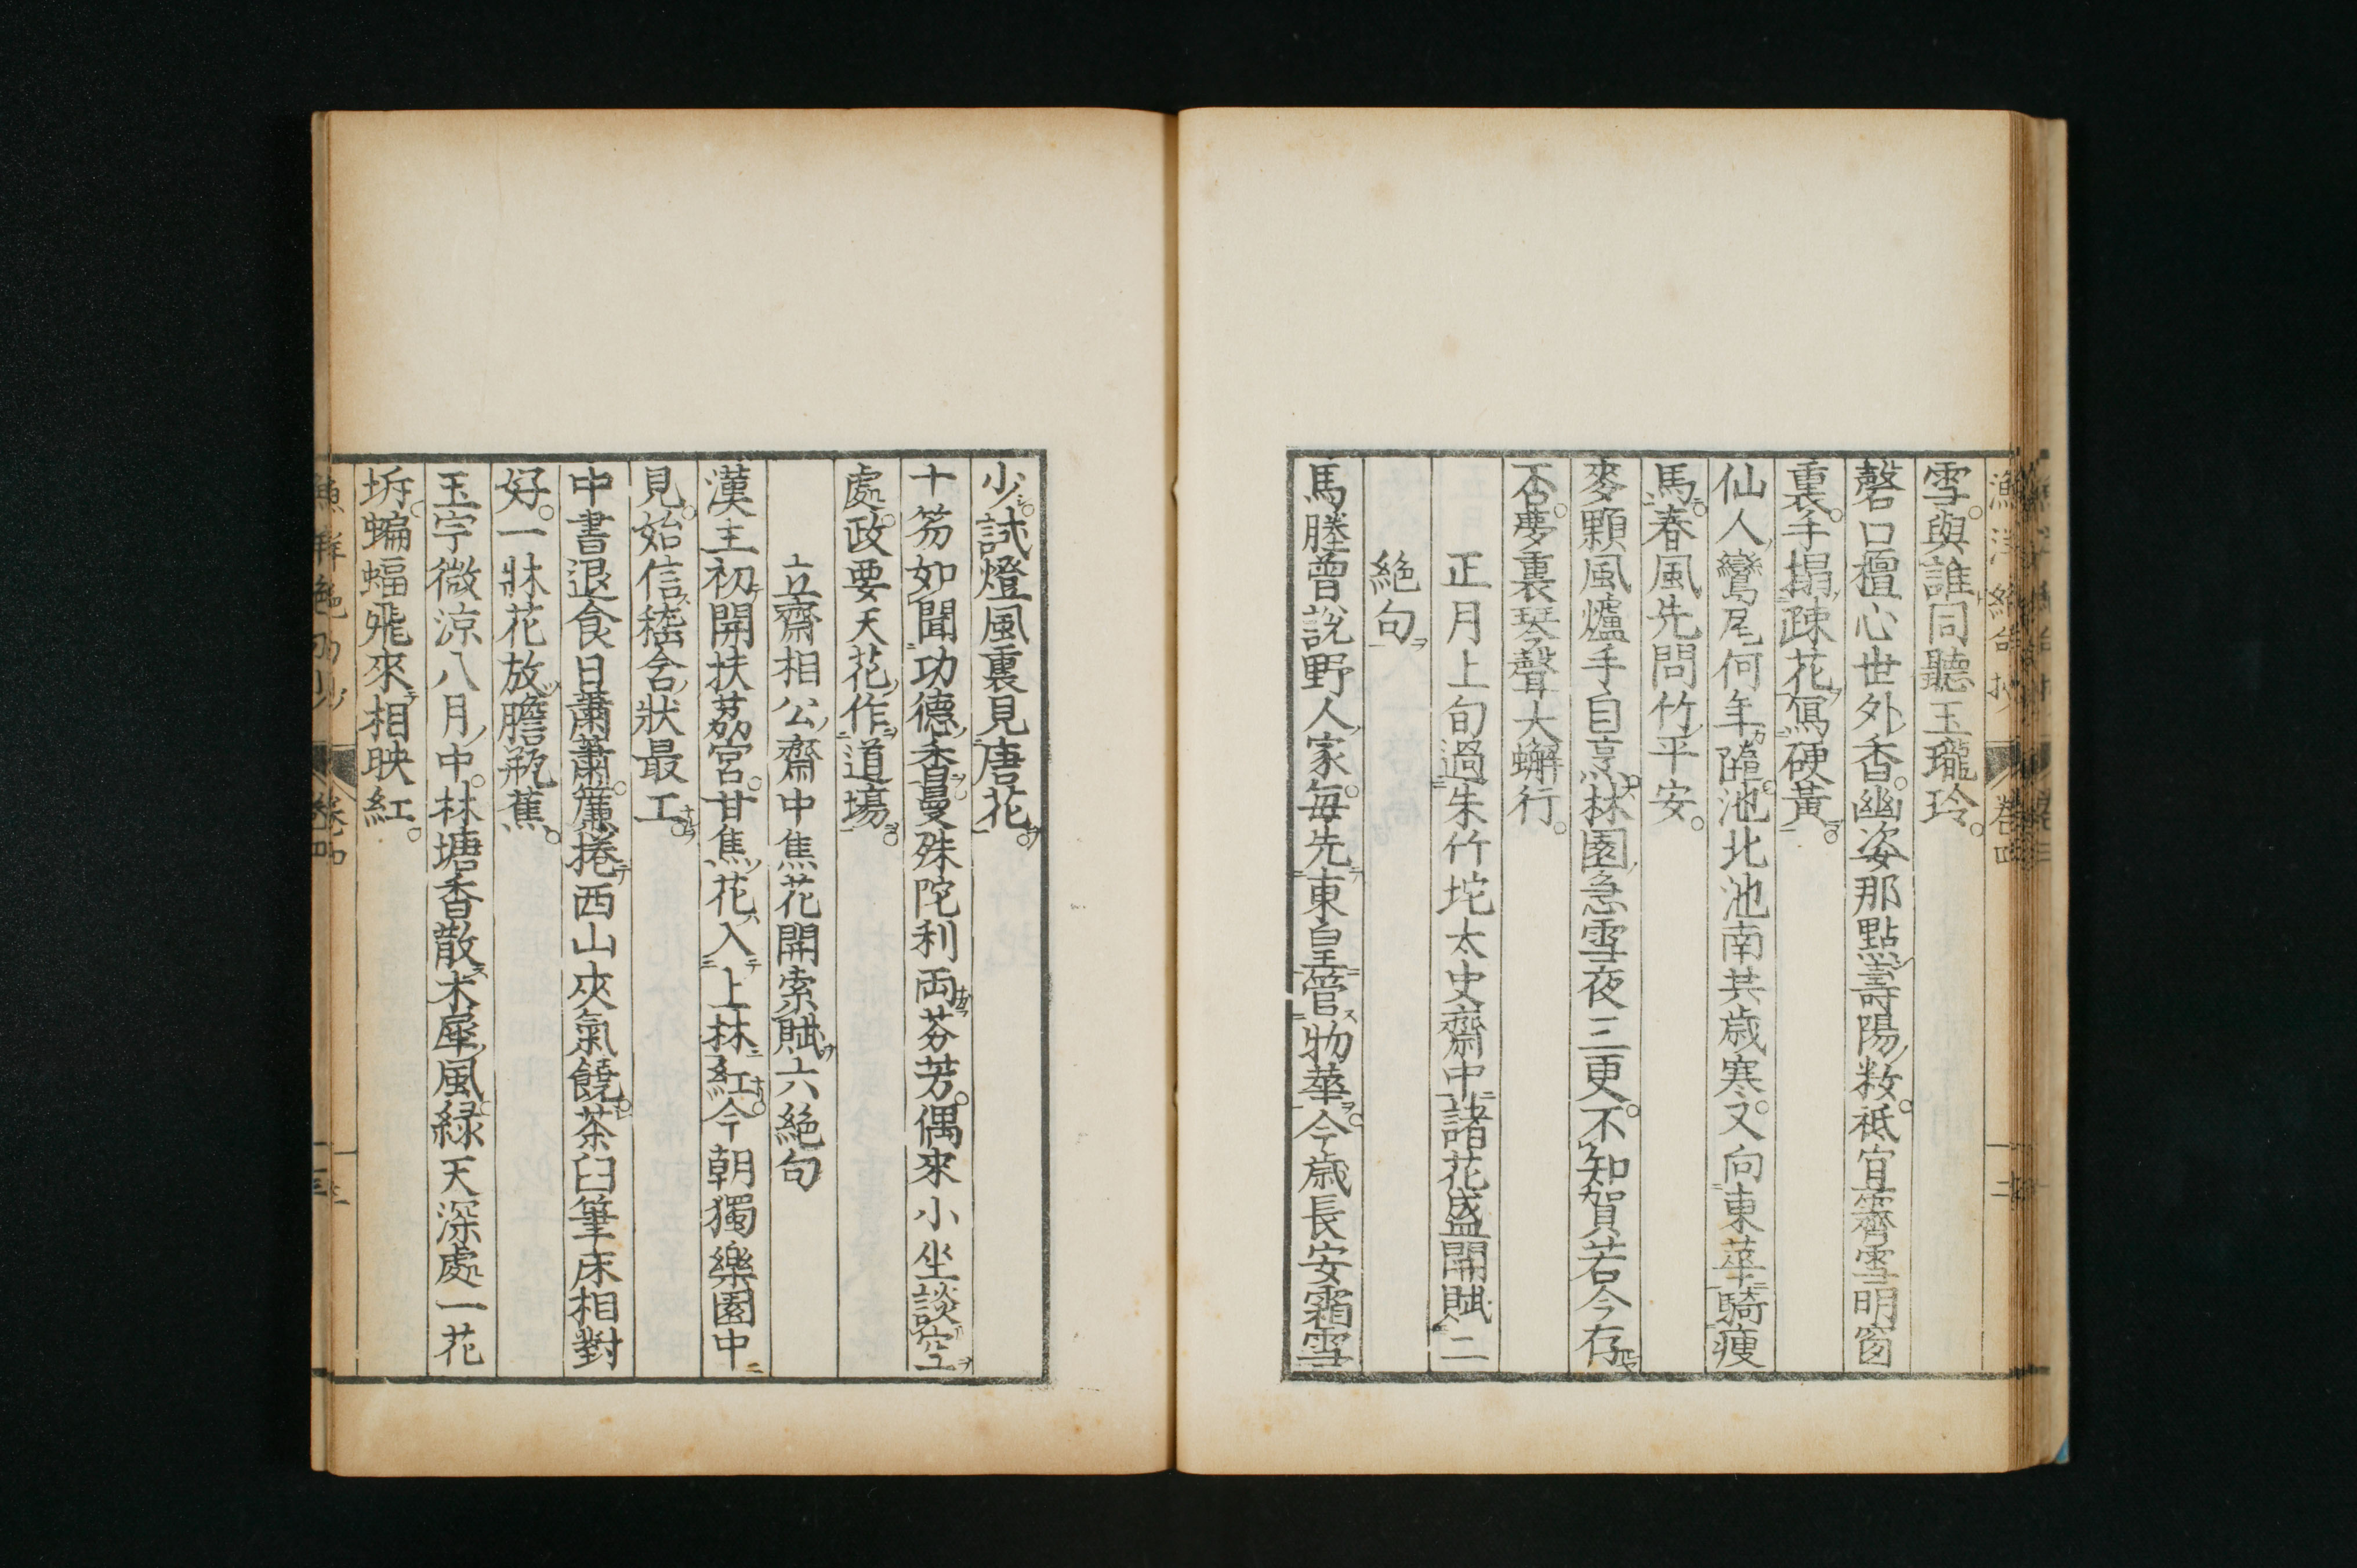 雪與誰同聽玉瓏玲
磬口檀心世外香幽姿那點壽陽粧祗宜霽雪明窗
裏手搨疎花寫硬黃
仙人鸞尾何年隨池北池南共歲寒又向東華騎瘦
馬春風先問竹平安
麥顆風爐手自烹林園急雪夜三更不知賀若今存
否夢裏琴聲大蠏行
正月上旬過朱竹垞太史齋中諸花盛開賦二
絕句
馬塍曾說野人家每先東皇管物華今歲長安霜雪
少試燈風裏見唐花
十笏如聞功德香曼殊陀利両芬芳偶來小坐談空
處政要天花作道場
立齋相公齋中焦花開索賦六絕句
漢主初開扶荔宮甘焦花入上林紅今朝獨樂園中
見始信嵇含狀最工
中書退食日蕭蕭簾捲西山夾氣饒茶臼筆床相對
好一牀花放膽瓶蕉
玉宇微涼八月中林塘香散木犀風緑天深處一花
坼蝙蝠飛來相映紅